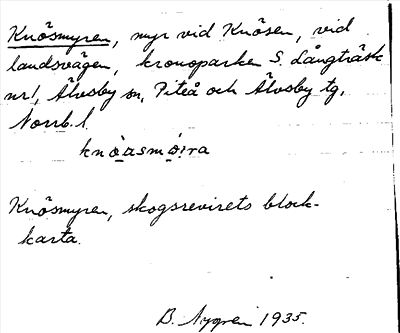 Knösmyren, myr vid Knösen, vid
landsvägen, kronoparken S. Långträsk
nr 1, Älvsby sn, Piteå och Älvsby tg,
Norrb. l.
knò̱asmò̱i̱ra
Knösmyren, skogsrevirets block-
karta.
B. Nygren 1935.